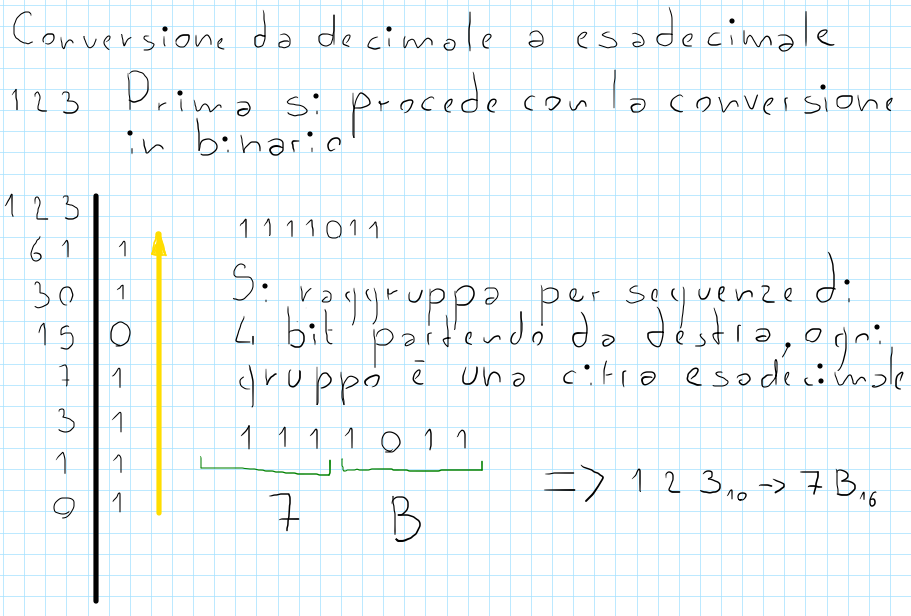 Conversione da decimale a esadecimale
123 Prima si procede con la conversione
in binario
123
61 1
30 1
15 0
7 1
3 1
1 1
0 1
1111011
Si raggruppa per sequenze di
4 bit partendo da destra, ogni
gruppo è una cifra esadecimale
1111011
7 B
=> 123₁₀ -> 7B₁₆